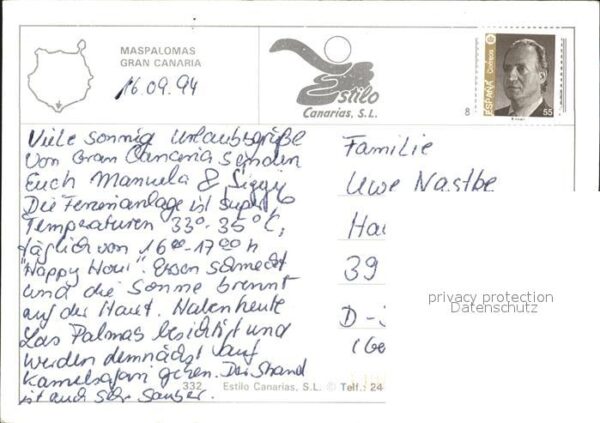 MASPALOMAS
GRAN CANARIA
16.09.94
Estilo
Canarias, S.L.
8
ESPAÑA
Correos
55
Viele sonnig Urlaubsgrüße
von Gran Canaria senden
Euch Manuela & Siggi
Die Ferienanlage ist super
Temperaturen 33°-35°C,
täglich von 16⁰⁰-17⁰⁰ h
"Happy Hour". Essen schmeckt
und die Sonne brennt
auf der Haut. Haben heute
Las Palmas besichtigt und
werden demnächst auf
Kamelsafari gehen. Der Strand
ist auch sehr sauber.
Familie
Uwe Nastke
Ha
39
D-
privacy protection
Datenschutz
332 Estilo Canarias, S.L. © Telf.: 24